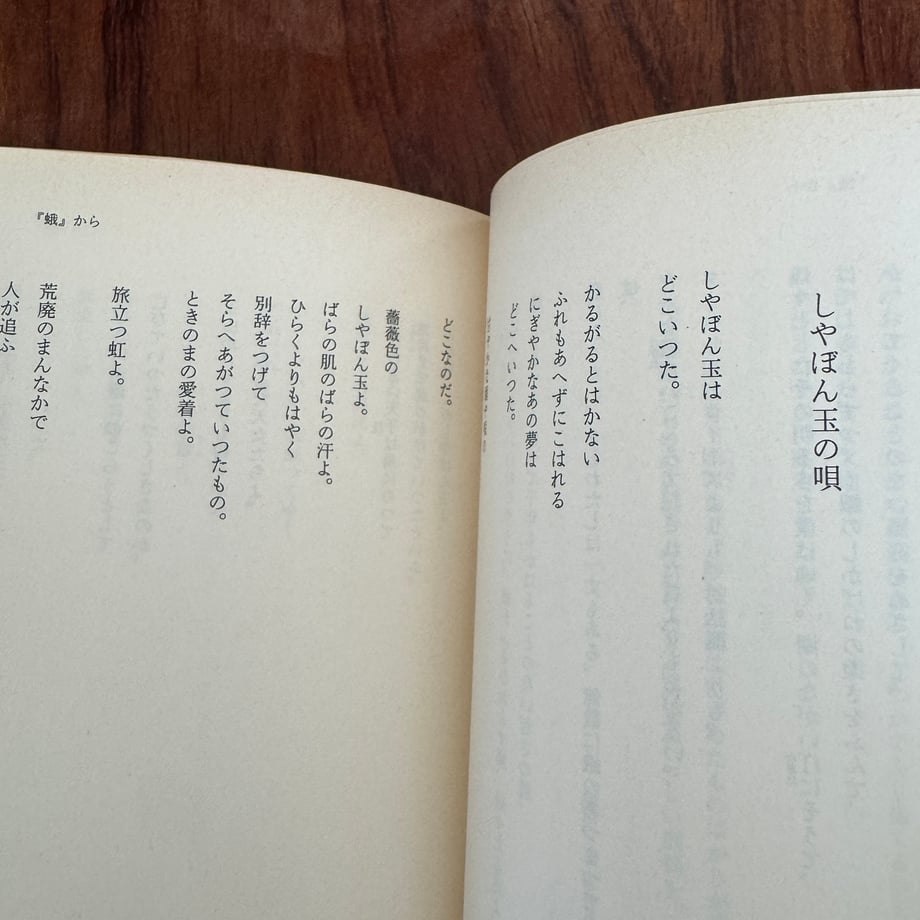 しやぼん玉の唄
しやぼん玉は
どこいつた。
かるがるとはかない
ふれもあへずにこはれる
にぎやかなあの夢は
どこへいつた。
『蛾』から
どこなのだ。
薔薇色の
しやぼん玉よ。
ばらの肌のばらの汗よ。
ひらくよりもはやく
別辞をつげて
そらへあがつていつたもの。
ときのまの愛着よ。
旅立つ虹よ。
荒廃のまんなかで
人が追ふ